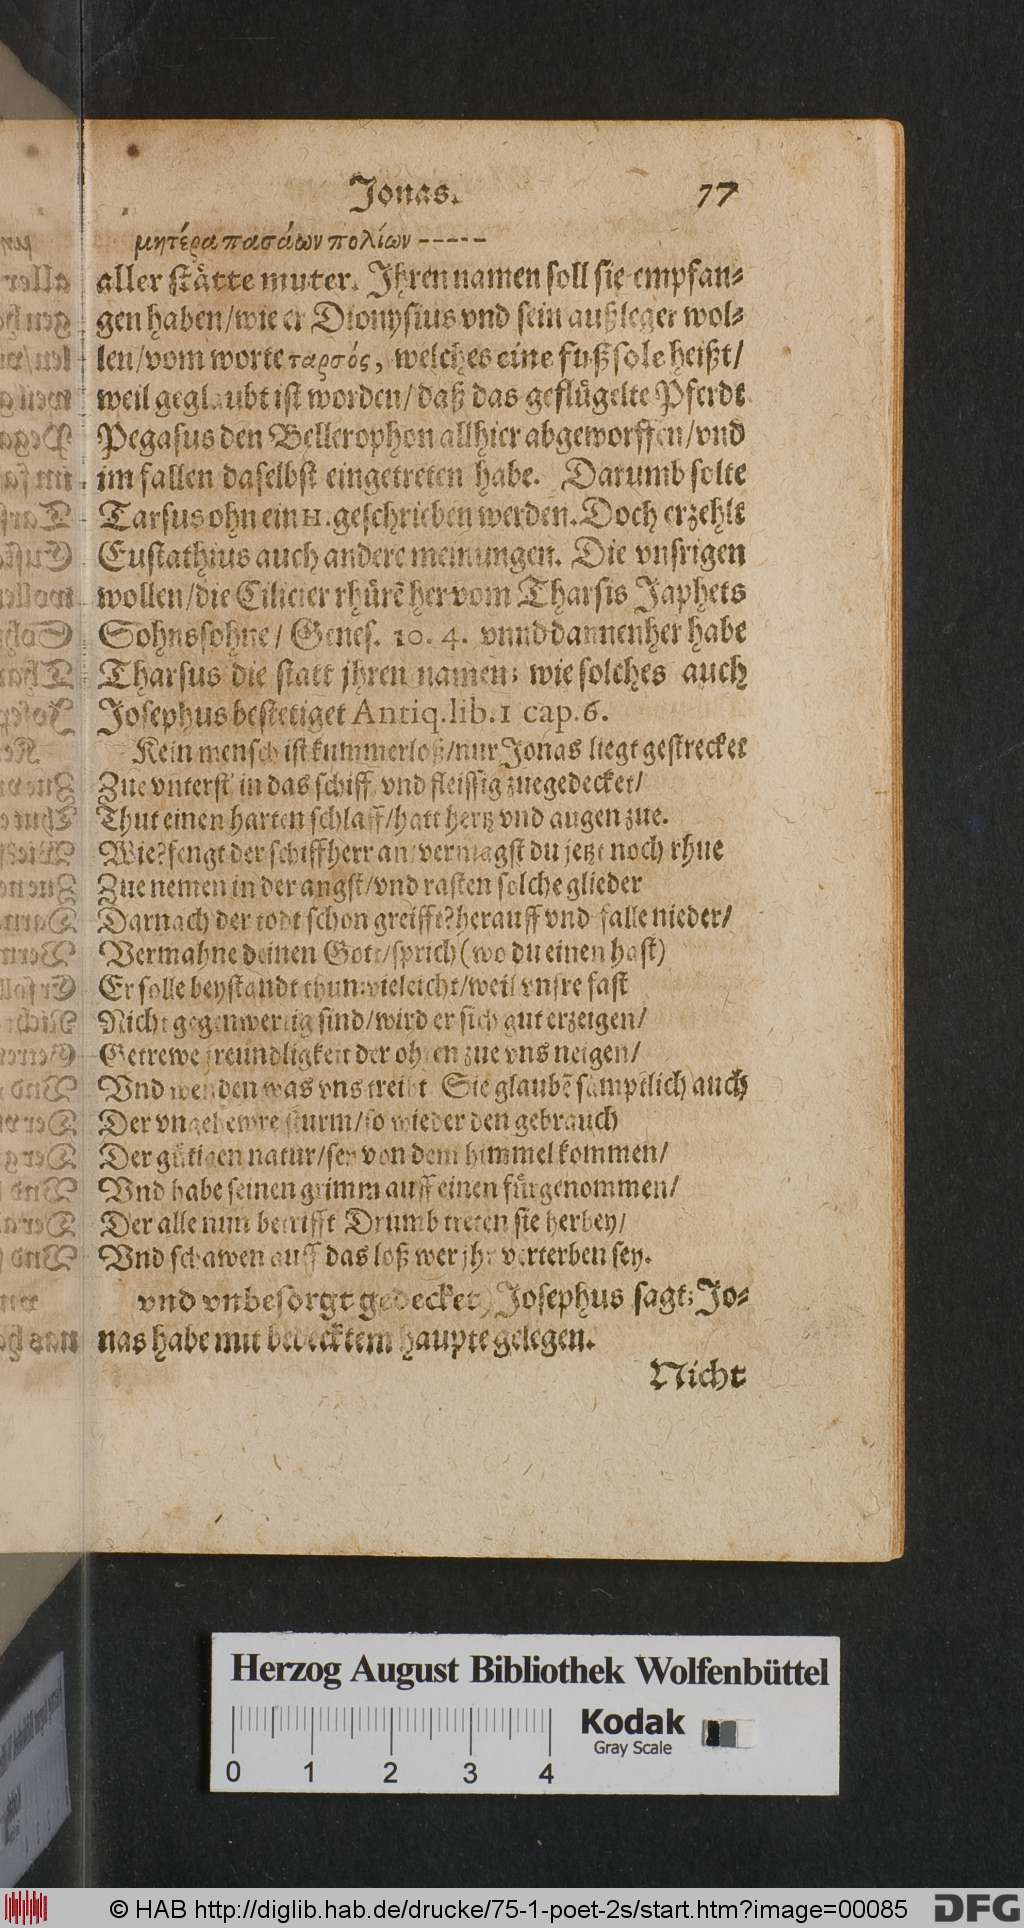 Jonas. 77
μητέρα πασάων πολίων -----
aller stätte muter. Jhren namen soll sie empfan-
gen haben/wie er Dionysius vnd sein außleger wol-
len/vom worte ταρσός, welches eine fußsole heißt/
weil geglaubt ist worden/daß das geflügelte Pferdt
Pegasus den Bellerophon allhier abgeworffen/vnd
im fallen daselbst eingetreten habe. Darumb solte
Tarsus ohn ein H. geschrieben werden. Doch erzehlt
Eustathius auch andere meinungen. Die vnsrigen
wollen/die Cilicier rhürẽ her vom Tharsis Japhets
Sohnssohne/ Genes. 10. 4. vnnd dannenher habe
Tharsus die statt jhren namen; wie solches auch
Josephus bestetiget Antiq. lib. 1 cap. 6.
Kein mensch ist kummerloß/nur Jonas liegt gestrecket
Zue vnterst in das schiff vnd fleissig zuegedecket/
Thut einen harten schlaff/hatt hertz vnd augen zue.
Wie?fengt der schiffherr an/vermagst du jetzt noch rhue
Zue nemen in der angst/vnd rasten solche glieder
Darnach der todt schon greifft?herauff vnd falle nieder/
Vermahne deinen Gott/sprich (wo du einen hast)
Er solle beystandt thun:vieleicht/weil vnsre fast
Nicht gegenwertig sind/wird er sich gut erzeigen/
Getrewe freundligkeit der ohren zue vns neigen/
Vnd wenden was vns treibt Sie glaubẽ sämptlich auch
Der vngehewre sturm/so wieder den gebrauch
Der gütigen natur/sey von dem himmel kommen/
Vnd habe seinen grimm auff einen fürgenommen/
Der alle nun betrifft Drumb treten sie herbey/
Vnd schawen auff das loß wer jhr verterben sey.
vnd vnbesorgt gedecket) Josephus sagt; Jo-
nas habe mit bedecktem haupte gelegen.
Nicht
Herzog August Bibliothek Wolfenbüttel
Kodak
Gray Scale
0 1 2 3 4
© HAB http://diglib.hab.de/drucke/75-1-poet-2s/start.htm?image=00085
DFG